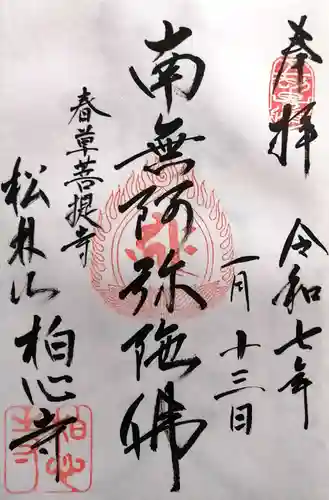 奉拝
令和七年
一月十三日
南無阿弥陀佛
春草菩提寺
松林山柏心寺